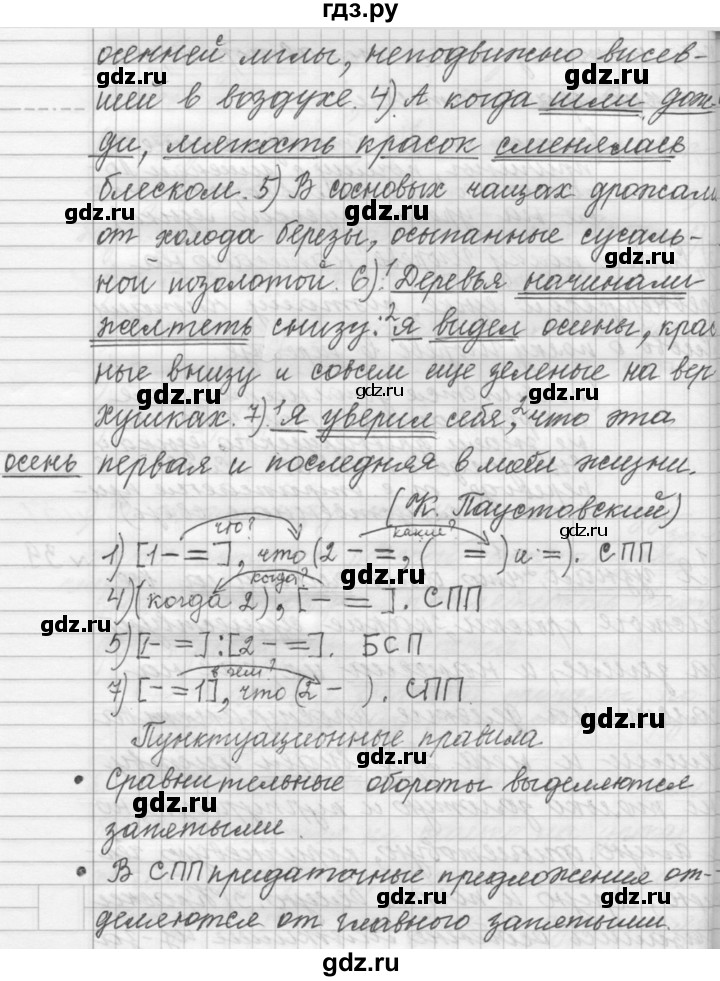 гдз.ру
осенней мглы, неподвижно висев-
шей в воздухе. 4) А когда шли дож-
ди, мягкость красок сменялась
блеском. 5) В сосновых чащах дрожали
от холода березы, осыпанные сусаль-
ной позолотой. 6) 1 Деревья начинали
желтеть снизу: 2 я видел осины, крас
ные внизу и совсем еще зеленые на вер
хушках. 7) 1 Я уверил себя, 2 что эта
осень первая и последняя в моей жизни.
(К. Паустовский)
что? какие?
1) [1 – =], что (2 – =, ( =) и =). СПП
когда?
4) (когда 2), [– =]. СПП
5) [– =] : [2 – =]. БСП
в чем?
7) [– =1], что (2 – ). СПП.
Пунктуационные правила
• Сравнительные обороты выделяются
запятыми.
• В СПП придаточные предложения от-
деляются от главного запятыми.
gdz.ru